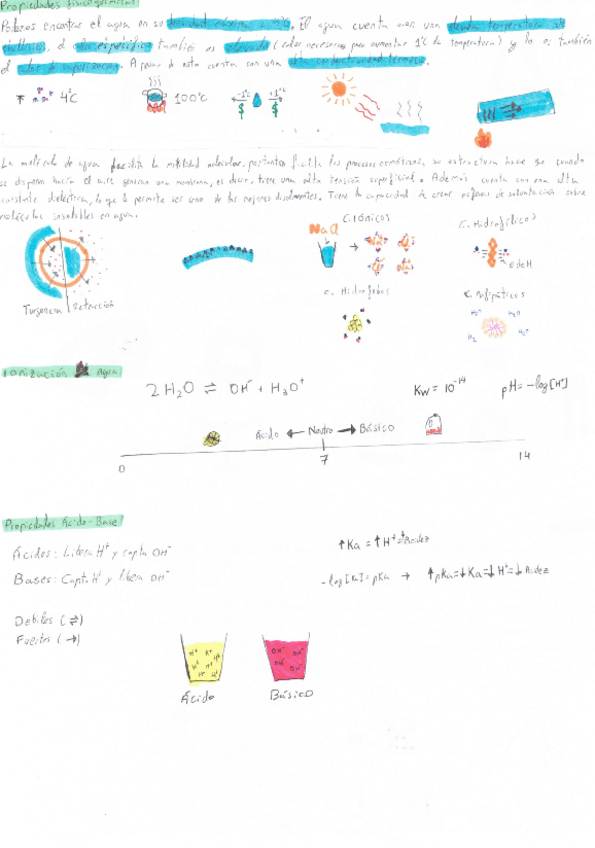 Propiedades fisicoquímicas
Podemos encontrar el agua en su densidad máxima a 4°C. El agua cuenta con una elevada temperatura de
ebullición, el calor específico también es elevado (calor necesario para aumentar 1°C la temperatura) y lo es también
el calor de vaporización. A pesar de esto cuenta con una alta conductividad térmica.
4°C
100°C
-1°C
+1°C
$ $
La molécula de agua facilita la movilidad molecular, por tanto facilita los procesos osmóticos, su estructura hace que cuando
se dispone hacia el aire generan una membrana, es decir, tiene una alta tensión superficial. Además cuenta con una alta
constante dieléctrica, lo que le permite ser uno de los mejores disolventes. Tiene la capacidad de crear esferas de solvatación sobre
moléculas insolubles en agua.
Turgencia Retracción
C. Iónicos
NaCl
C. Hidrofílicos
C. Hidrofobos
C. Anfipáticos
Ionización Agua
2 H₂O ⇌ OH⁻ + H₃O⁺
Kw = 10⁻¹⁴
pH = -log[H⁺]
Ácido ← Neutro → Básico
0 7 14
Propiedades Ácido-Base
Ácidos: Libera H⁺ y capta OH⁻
Bases: Capta H⁺ y libera OH⁻
↑Ka = ↑H⁺ = ↑Acidez
-log[Ka] = pKa → ↑pKa = ↓Ka = ↓H⁺ = ↓Acidez
Débiles (⇌)
Fuertes (→)
Ácido
Básico